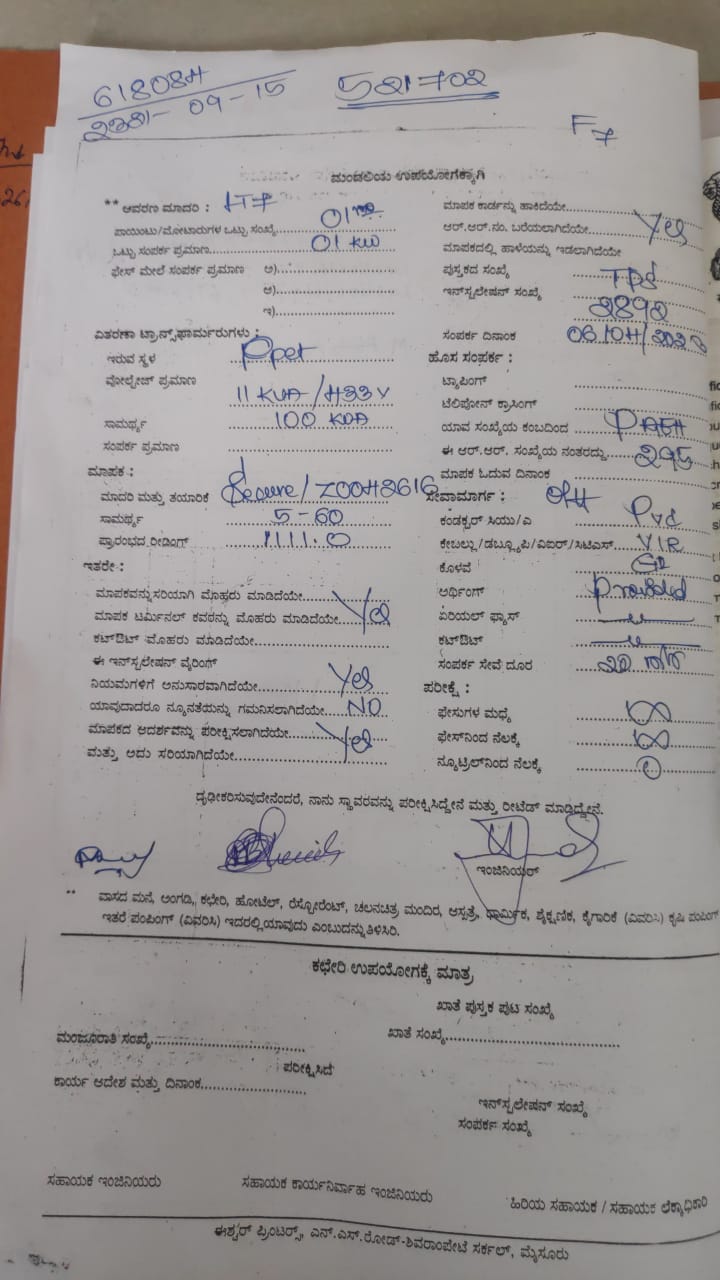 61808H
09-15
521702
F7
ಮಂಡಲಿಯ ಉಪಯೋಗಕ್ಕಾಗಿ
** ಆವರಣ ಮಾದರಿ :
ಪಾಯಿಂಟು/ಮೋಟಾರುಗಳ ಒಟ್ಟು ಸಂಖ್ಯೆ 01
ಒಟ್ಟು ಸಂಪರ್ಕ ಪ್ರಮಾಣ 01 KW
ಫೇಸ್ ಮೇಲೆ ಸಂಪರ್ಕ ಪ್ರಮಾಣ ಅ)
ಆ)
ಇ)
ವಿತರಣಾ ಟ್ರಾನ್ಸ್‌ಫಾರ್ಮರುಗಳು :
ಇರುವ ಸ್ಥಳ Ppet
ವೋಲ್ಟೇಜ್ ಪ್ರಮಾಣ
11 KVA /433V
ಸಾಮರ್ಥ್ಯ 100 KVA
ಸಂಪರ್ಕ ಪ್ರಮಾಣ
ಮಾಪಕ :
ಮಾದರಿ ಮತ್ತು ತಯಾರಿಕೆ Secure/
ಸಾಮರ್ಥ್ಯ 5-60
ಪ್ರಾರಂಭದ ರೀಡಿಂಗ್ 1111.0
ಇತರೇ :
ಮಾಪಕವನ್ನು ಸರಿಯಾಗಿ ಮೊಹರು ಮಾಡಿದೆಯೇ
ಮಾಪಕ ಟರ್ಮಿನಲ್ ಕವಠನ್ನು ಮೊಹರು ಮಾಡಿದೆಯೇ Yes
ಕಟ್‌ಔಟ್ ಮೊಹರು ಮಾಡಿದೆಯೇ
ಈ ಇನ್‌ಸ್ಟಲೇಷನ್ ವೈರಿಂಗ್
ನಿಯಮಗಳಿಗೆ ಅನುಸಾರವಾಗಿದೆಯೇ Yes
ಯಾವುದಾದರೂ ನ್ಯೂನತೆಯನ್ನು ಗಮನಿಸಲಾಗಿದೆಯೇ NO
ಮಾಪಕದ ಆದರ್ಶವನ್ನು ಪರೀಕ್ಷಿಸಲಾಗಿದೆಯೇ Yes
ಮತ್ತು ಅದು ಸರಿಯಾಗಿದೆಯೇ
ಮಾಪಕ ಕಾರ್ಡನ್ನು ಹಾಕಿದೆಯೇ
ಆರ್.ಆರ್.ನಂ. ಬರೆಯಲಾಗಿದೆಯೇ Yes
ಮಾಪಕದಲ್ಲಿ ಹಾಳೆಯನ್ನು ಇಡಲಾಗಿದೆಯೇ
ಪುಸ್ತಕದ ಸಂಖ್ಯೆ
ಇನ್‌ಸ್ಟಲೇಷನ್ ಸಂಖ್ಯೆ 2892
ಸಂಪರ್ಕ ದಿನಾಂಕ
ಹೊಸ ಸಂಪರ್ಕ :
ಟ್ಯಾಪಿಂಗ್
ಟೆಲಿಫೋನ್ ಕ್ರಾಸಿಂಗ್
ಯಾವ ಸಂಖ್ಯೆಯ ಕಂಬದಿಂದ
ಈ ಆರ್.ಆರ್. ಸಂಖ್ಯೆಯ ನಂತರದ್ದು 295
ಮಾಪಕ ಓದುವ ದಿನಾಂಕ
ಸೇವಾಮಾರ್ಗ : OH
ಕಂಡಕ್ಟರ್ ಸಿಯು/ಎ Pvc
ಕೇಬಲ್ಲು/ಡಬ್ಲ್ಯೂಪಿ/ವಿಐರ್/ಸಿಟಿಎಸ್ VIR
ಕೊಳವೆ GI
ಅರ್ಥಿಂಗ್ Provided
ಏರಿಯಲ್ ಫ್ಯೂಸ್
ಕಟ್‌ಔಟ್
ಸಂಪರ್ಕ ಸೇವೆ ದೂರ
ಪರೀಕ್ಷೆ :
ಫೇಸುಗಳ ಮಧ್ಯೆ ∞
ಫೇಸ್‌ನಿಂದ ನೆಲಕ್ಕೆ ∞
ನ್ಯೂಟ್ರಿಲ್‌ನಿಂದ ನೆಲಕ್ಕೆ
ದೃಢೀಕರಿಸುವುದೇನೆಂದರೆ, ನಾನು ಸ್ಥಾವರವನ್ನು ಪರೀಕ್ಷಿಸಿದ್ದೇನೆ ಮತ್ತು ರೀಟೆಡ್ ಮಾಡಿದ್ದೇನೆ.
ಇಂಜಿನಿಯರ್
** ವಾಸದ ಮನೆ, ಅಂಗಡಿ, ಕಛೇರಿ, ಹೋಟೆಲ್, ರೆಸ್ಟೋರೆಂಟ್, ಚಲನಚಿತ್ರ ಮಂದಿರ, ಆಸ್ಪತ್ರೆ, ಧಾರ್ಮಿಕ, ಶೈಕ್ಷಣಿಕ, ಕೈಗಾರಿಕೆ (ವಿವರಿಸಿ) ಕೃಷಿ ಪಂಪಿಂಗ್
ಇತರೆ ಪಂಪಿಂಗ್ (ವಿವರಿಸಿ) ಇದರಲ್ಲಿ ಯಾವುದು ಎಂಬುದನ್ನು ತಿಳಿಸಿರಿ.
ಕಛೇರಿ ಉಪಯೋಗಕ್ಕೆ ಮಾತ್ರ
ಖಾತೆ ಪುಸ್ತಕ ಪುಟ ಸಂಖ್ಯೆ
ಮಂಜೂರಾತಿ ಸಂಖ್ಯೆ
ಖಾತೆ ಸಂಖ್ಯೆ
ಪರೀಕ್ಷಿಸಿದೆ
ಕಾರ್ಯ ಆದೇಶ ಮತ್ತು ದಿನಾಂಕ
ಇನ್‌ಸ್ಟಲೇಷನ್ ಸಂಖ್ಯೆ
ಸಂಪರ್ಕ ಸಂಖ್ಯೆ
ಸಹಾಯಕ ಇಂಜಿನಿಯರು
ಸಹಾಯಕ ಕಾರ್ಯನಿರ್ವಾಹ ಇಂಜಿನಿಯರು
ಹಿರಿಯ ಸಹಾಯಕ / ಸಹಾಯಕ ಲೆಕ್ಕಾಧಿಕಾರಿ
ಈಶ್ವರ್ ಪ್ರಿಂಟರ್ಸ್, ಎನ್.ಎಸ್.ರೋಡ್-ಶಿವರಾಂಪೇಟೆ ಸರ್ಕಲ್, ಮೈಸೂರು